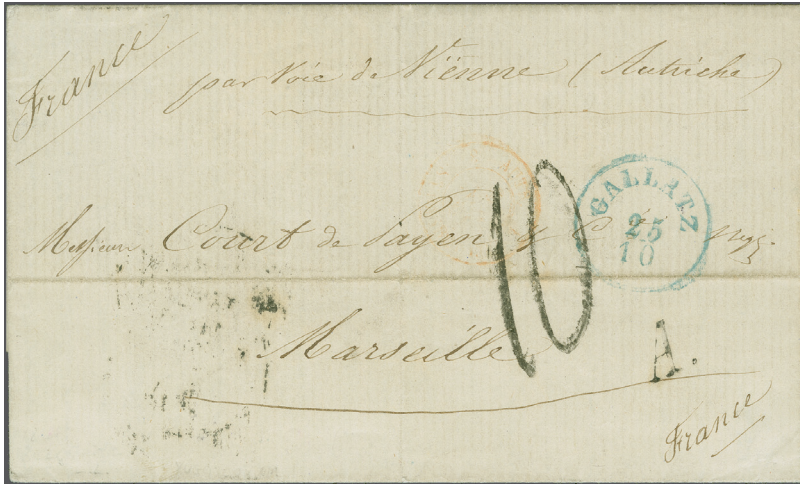 France
par Voie de Vienne (Autriche)
GALLATZ
25
10
10
Messieurs Court de Payen & Cie Negts.
Marseille
A.
France